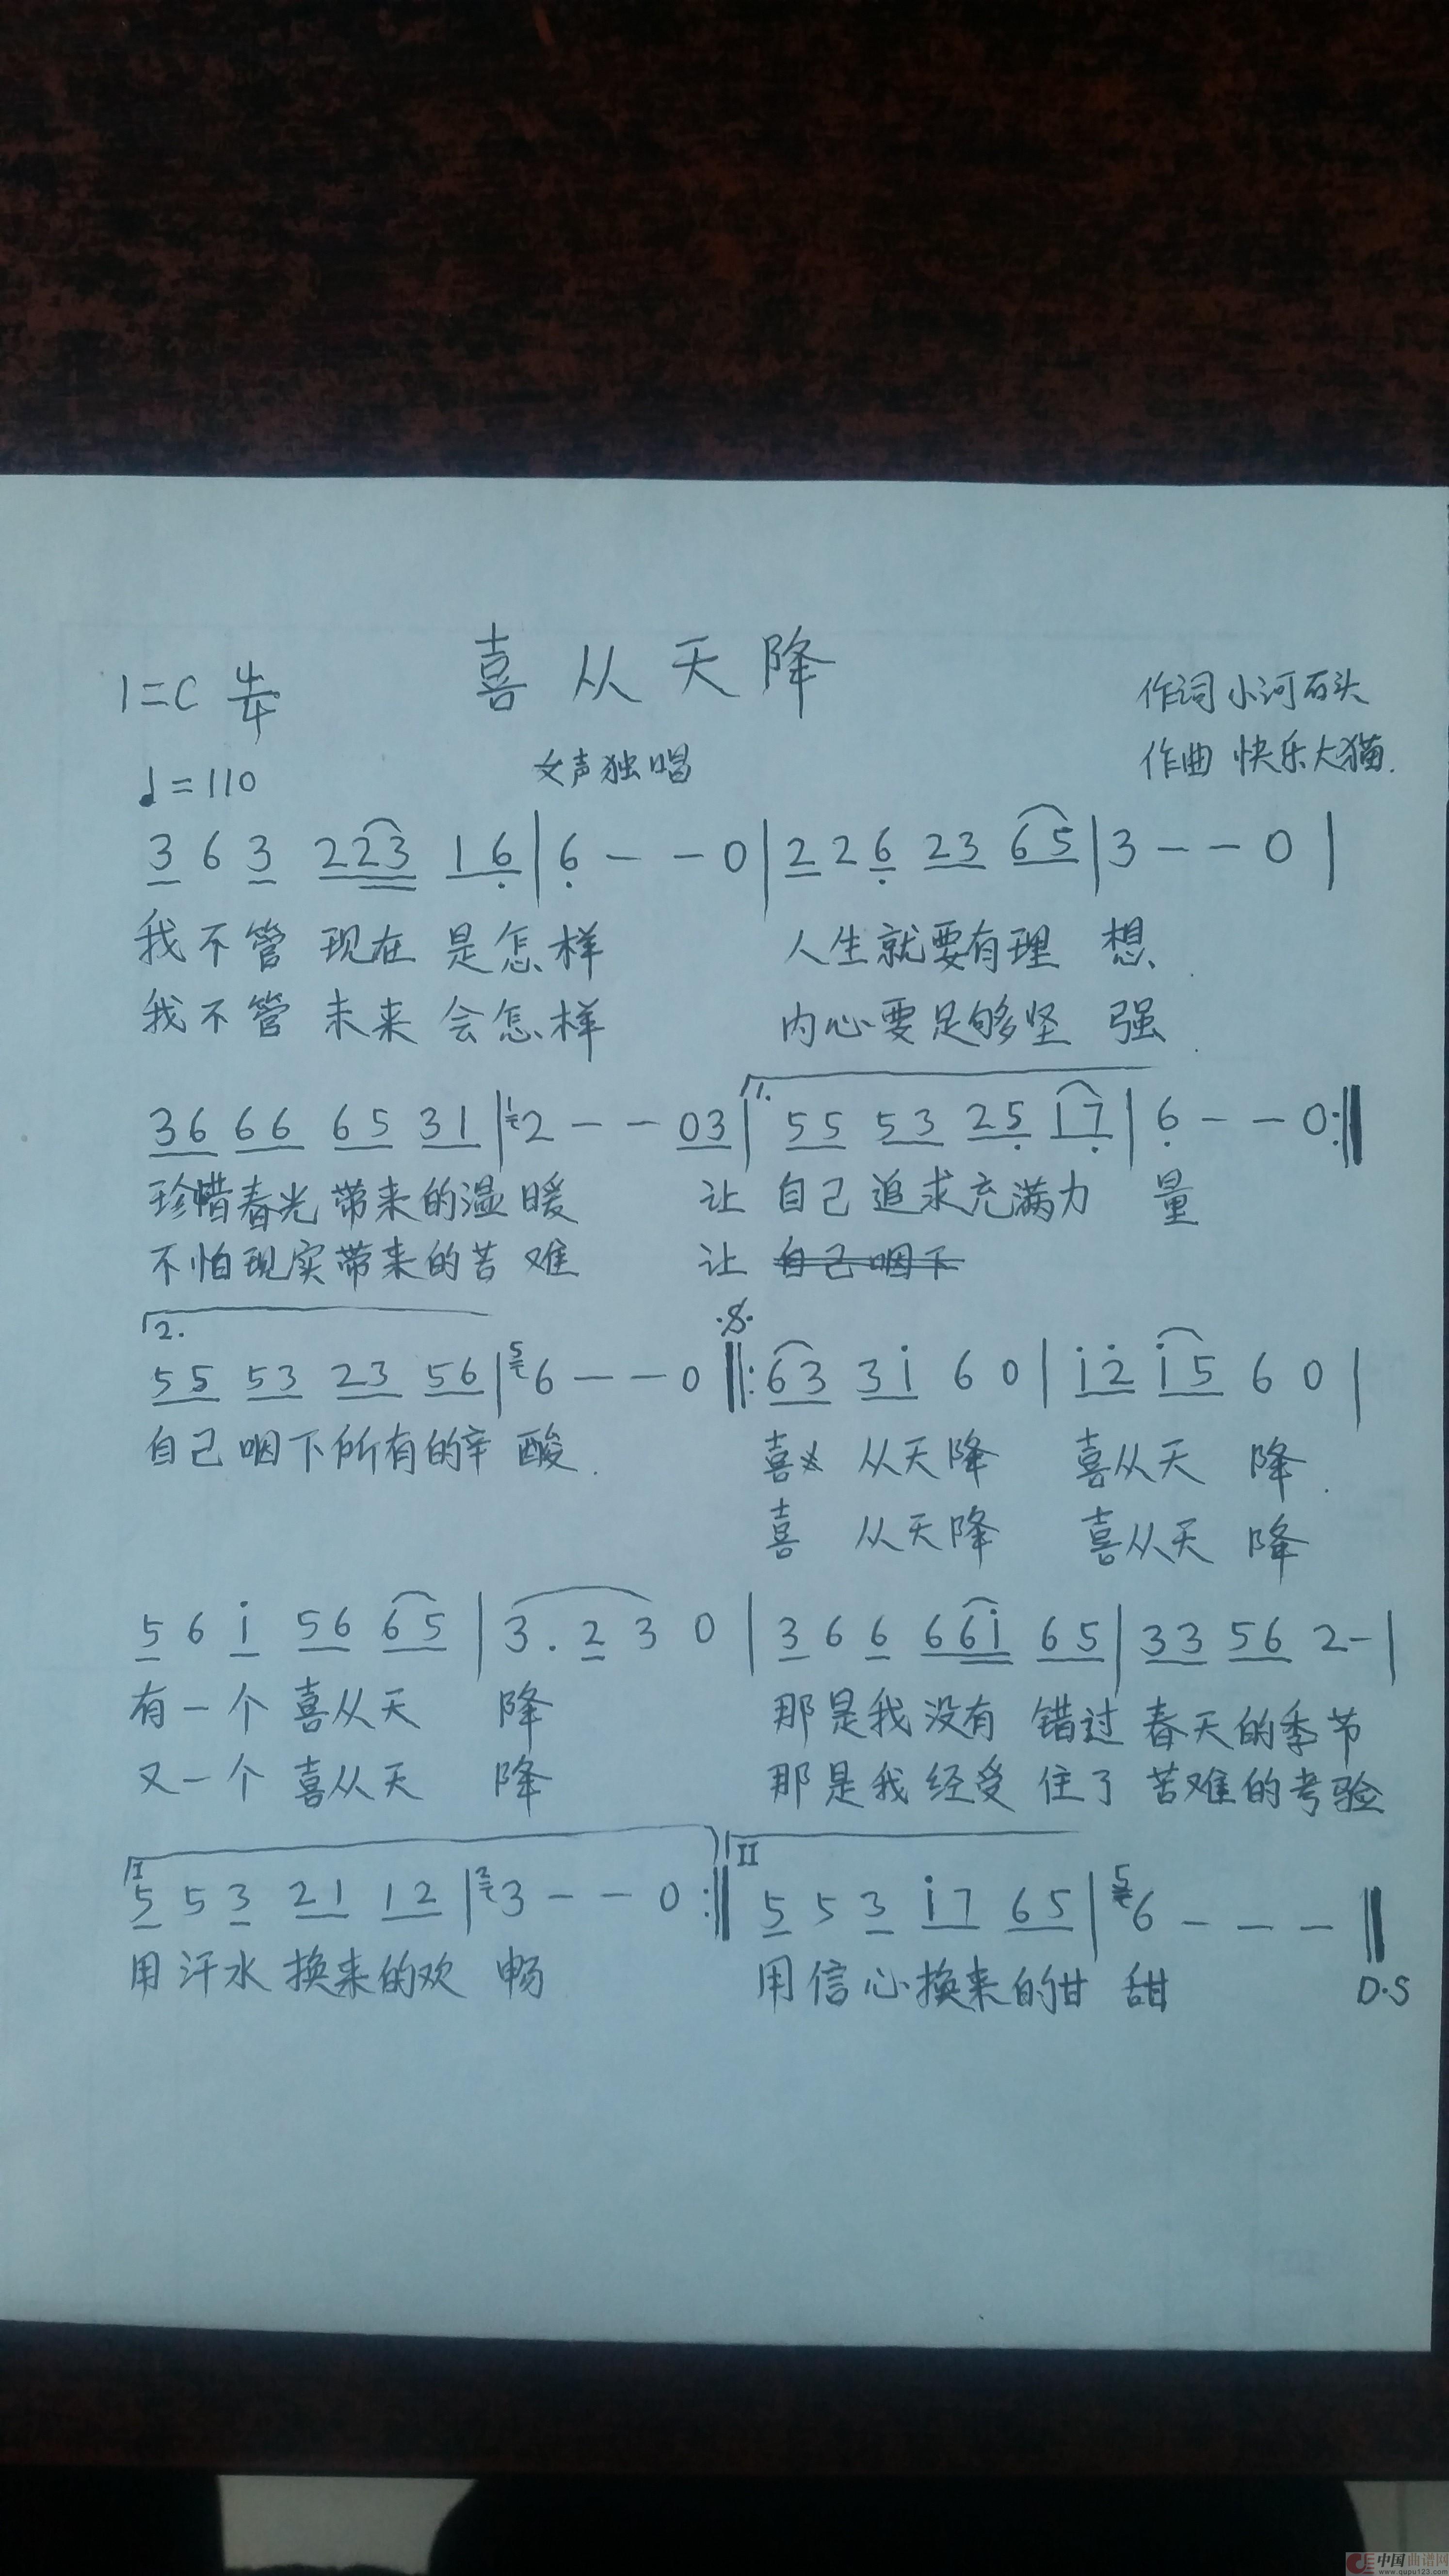 喜从天降
1=C 4/4
作词 小河石头
♩=110
女声独唱
作曲 快乐大猫.
3 6 3 223 1 6 | 6 - - 0 | 2 2 6 23 65 | 3 - - 0 |
我不管 现在 是怎样 人生就要有理 想
我不管 未来 会怎样 内心要足够坚 强
36 66 65 31 | 2 - - 03 | 1. 55 53 25 17 | 6 - - 0 :||
珍惜春光带来的温暖 让 自己追求充满力 量
不怕现实带来的苦难 让 自己咽下
2. 𝄋
55 53 23 56 | 5 6 - - 0 ||: 63 3i 6 0 | i2 i5 6 0 |
自己咽下所有的辛 酸. 喜 从天降 喜从天 降.
喜 从天降 喜从天 降
5 6 i 56 65 | 3. 2 3 0 | 3 6 6 66i 65 | 33 56 2- |
有一个 喜从天 降 那是我没有 错过 春天的季节
又一个 喜从天 降 那是我经受 住了 苦难的考验
I 5 5 3 21 12 | 2 3 - - 0 :|| II 5 5 3 i7 65 | 5 6 - - - ||
用汗水 换来的欢 畅 用信心换来的甘 甜 D.S
中国曲谱网
www.qupu123.com